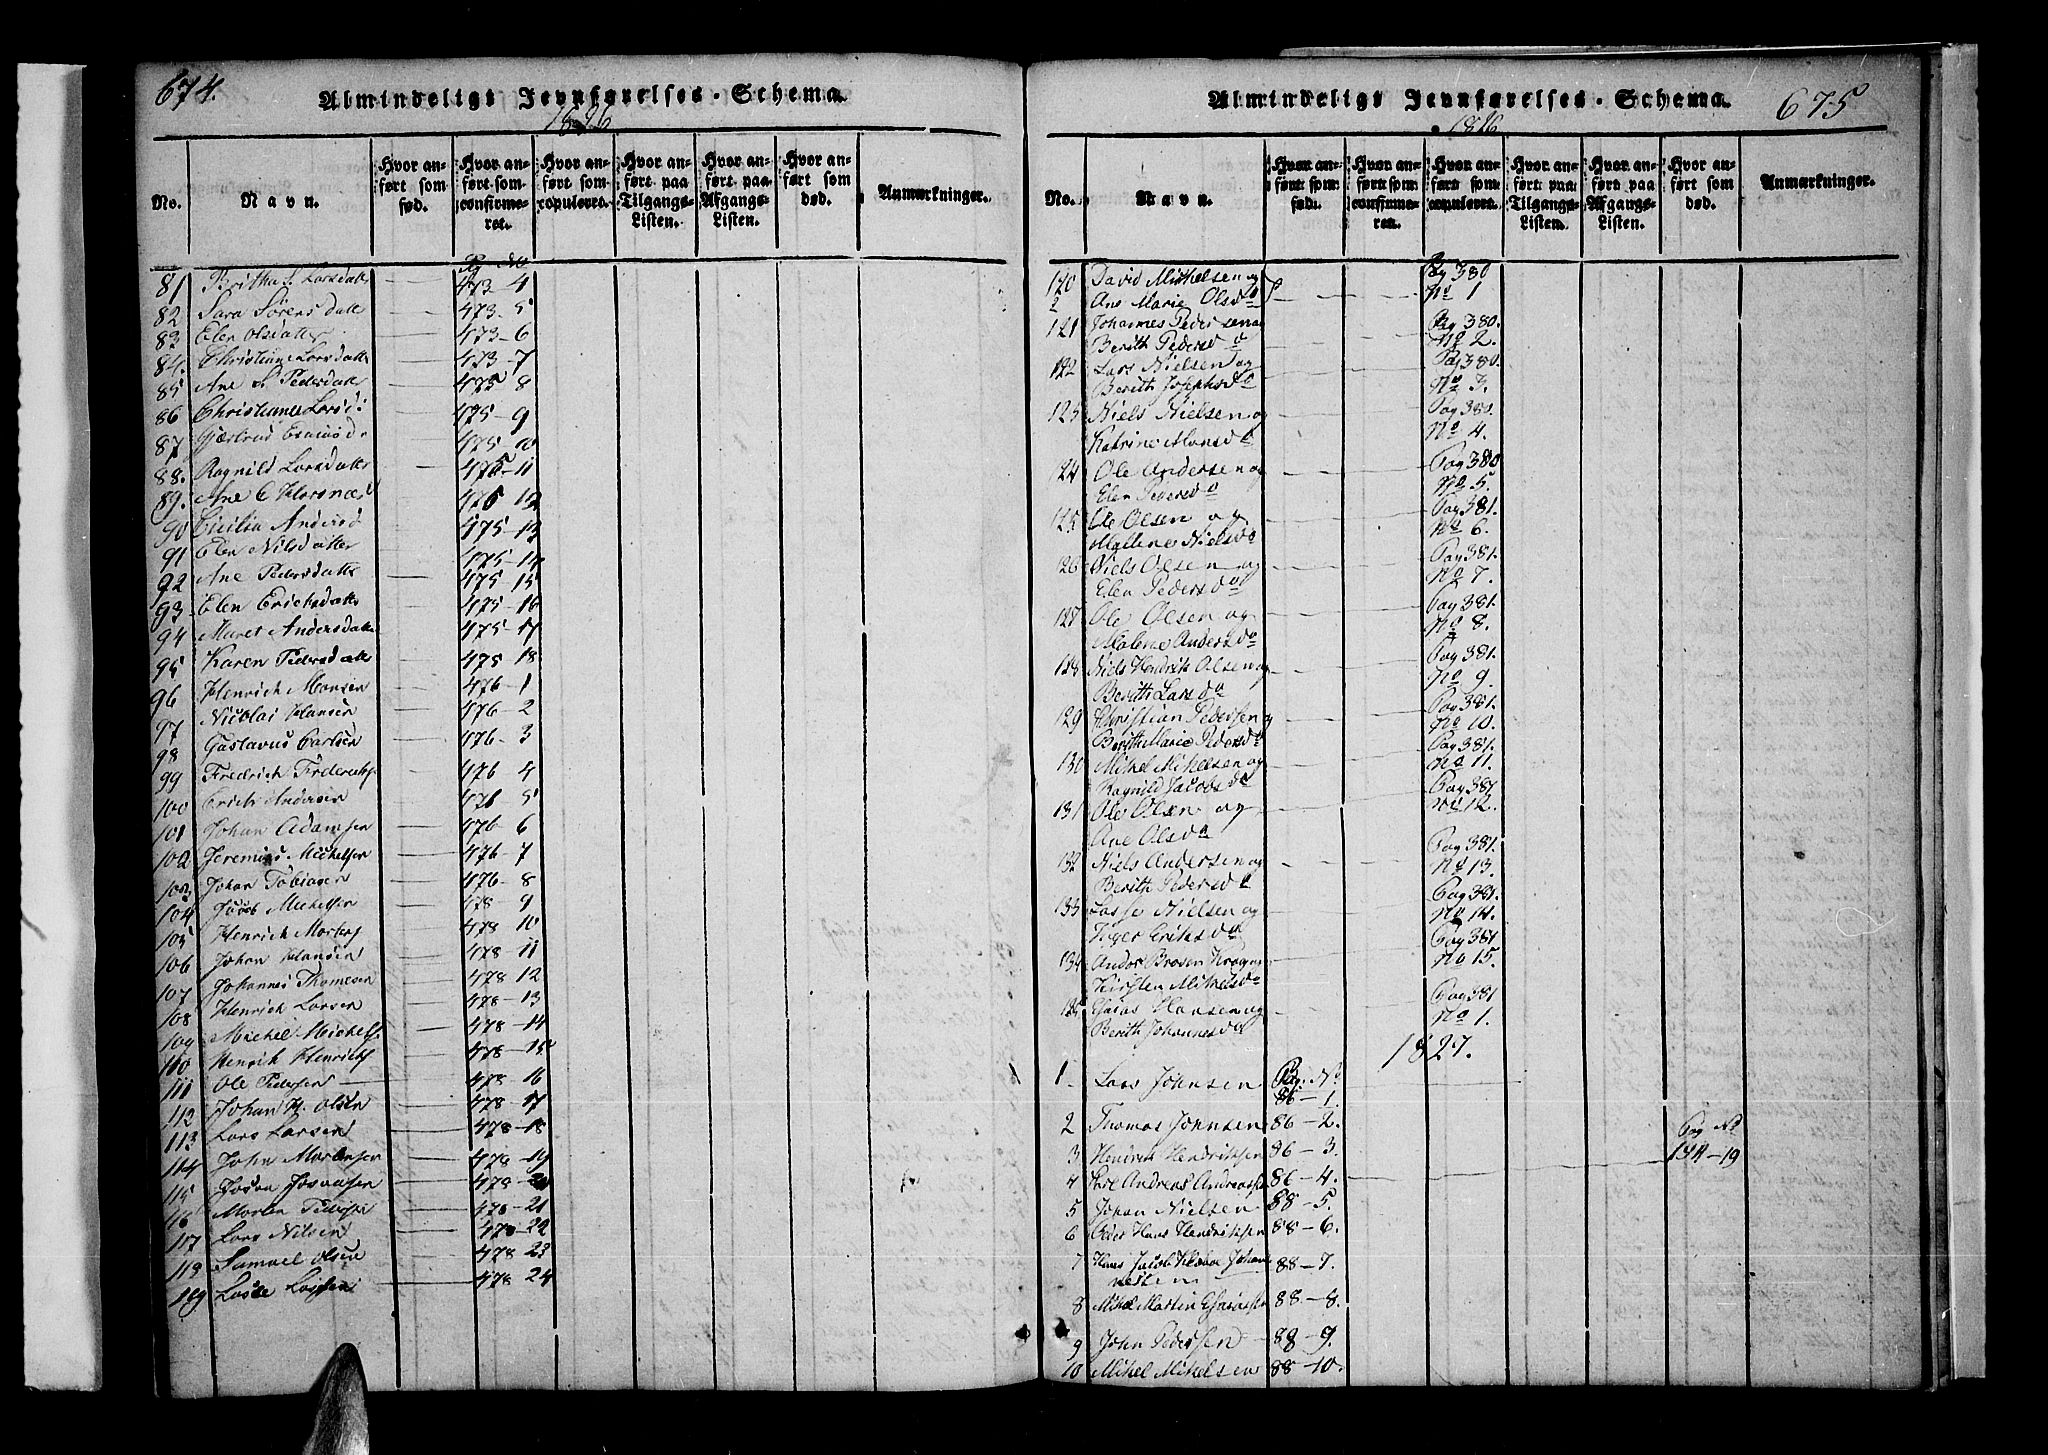 674.
Almindeligt Jevnførelses-Schema.
1826
No.
Navn.
Hvor anført som fød.
Hvor anført som confirmeret.
Hvor anført som copuleret.
Hvor anført paa Tilgangs-Listen.
Hvor anført paa Afgangs-Listen.
Hvor anført som død.
Anmærkninger.
Pg No
81 Britha S. Larsdatter 473-4
82 Sara Sørensdatt 473-5
83 Elen Olsdatter 473-6
84. Christiane Larsdatter 473-7
85 Ane S Pedersdatter 475 8
86 Christiane Larsd: 475-9
87 475-10
88. Ragnild Larsdatter 475-11
89. Ane C 475 12
90 Cicilia Andersd 475-13
91 Elen Nilsdatter 475-14
92 Ane Pedersdatt 475-15
93 Elen Ericksdatt 475-16
94 Maret Andersdatt 475-17
95 Karen Pedersdatter 475 18
96 Henrich Monsen 476-1
97 Nicolai Hansen 476-2
98 Gustavus Carlsen 476-3
99 Fredrich 476 4
100 Erich Andersen 476 5
101 Johan Adamsen 476-6
102 Jeremias Michelsen 476-7
103 Johan Tobiasen 476-8
104 Jacob Michelsen 478 9
105 Henrich 478 10
106 Johan Hansen 478 11
107 Johannes Thomesen 478 12
108 Henrich Larsen 478-13
109 Michel Michels 478-14
110 Henrich Henrichs 478-15
111 Ole Pedersen 478-16
112 Johan H. Olsen 478-17
113 Lars Larsen 478-18
114 John Mortensen 478-19
115 478-20
116 Morten Peders 478-21
117 Lars Nilsen 478-22
118 Samuel Olsen 478 23
119 Lasse Lassen 478 24
Almindeligt Jevnførelses-Schema.
675
1826
No.
Navn.
Hvor anført som fød.
Hvor anført som confirmeret.
Hvor anført som copuleret.
Hvor anført paa Tilgangs-Listen.
Hvor anført paa Afgangs-Listen.
Hvor anført som død.
Anmærkninger.
120 David Mikkelsen og Pag 380
Ane Marie Olsda No 1
121 Johannes Pedersen og Pag 380.
Berith Pedersda No 2.
122 Lars Nielsen og Pag 380
Berith Josephsda No 3.
123 Niels Nielsen og Pag 380.
Katrine Monsda No 4.
124 Ole Andersen og Pag 380
Elen Pedersda No 5.
125 Ole Olsen og Pag 381.
Mallene Nielsda No 6.
126 Niels Olsen og Pag 381.
Elen Pedersda No 7.
127 Ole Olsen og Pag 381.
Malene Andersda No 8.
128 Niels Hendrik Olsen og Pag 381.
Berith Larsda No 9.
129 Christian Pedersen og Pag 381.
Berith Marie Pedersda No 10.
130 Mikel Mikelsen og Pag 381.
Ragnild Jacobsda No 11.
131 Ole Olsen og Pag 381
Ane Olsda No 12.
132 Niels Andersen og Pag 381.
Berith Pedersda No 13.
133 Lasse Nielsen og Pag 381.
Inger Eriksda No 14.
134 Pag 381
Kirsten Mikelsda No 15.
135 Esaias Hansen og Pag 381
Berith Johannesda No 1.
1827.
Pag. No
1. Lars Johnsen 86-1.
2 Thomas Johnsen 86-2.
Pag No
3 Hendrik Hendriksen 86-3. 144-19
4 Andreas Andreassen 86-4.
5 Johan Nielsen 88-5.
6 Peder Hans Hendriksen 88-6.
7 Hans Jacob Johan 88-7.
nessen
8 Mikel Martin Esaiassen 88-8.
9 John Pedersen 88-9.
10 Mikel Mikelsen 88-10.